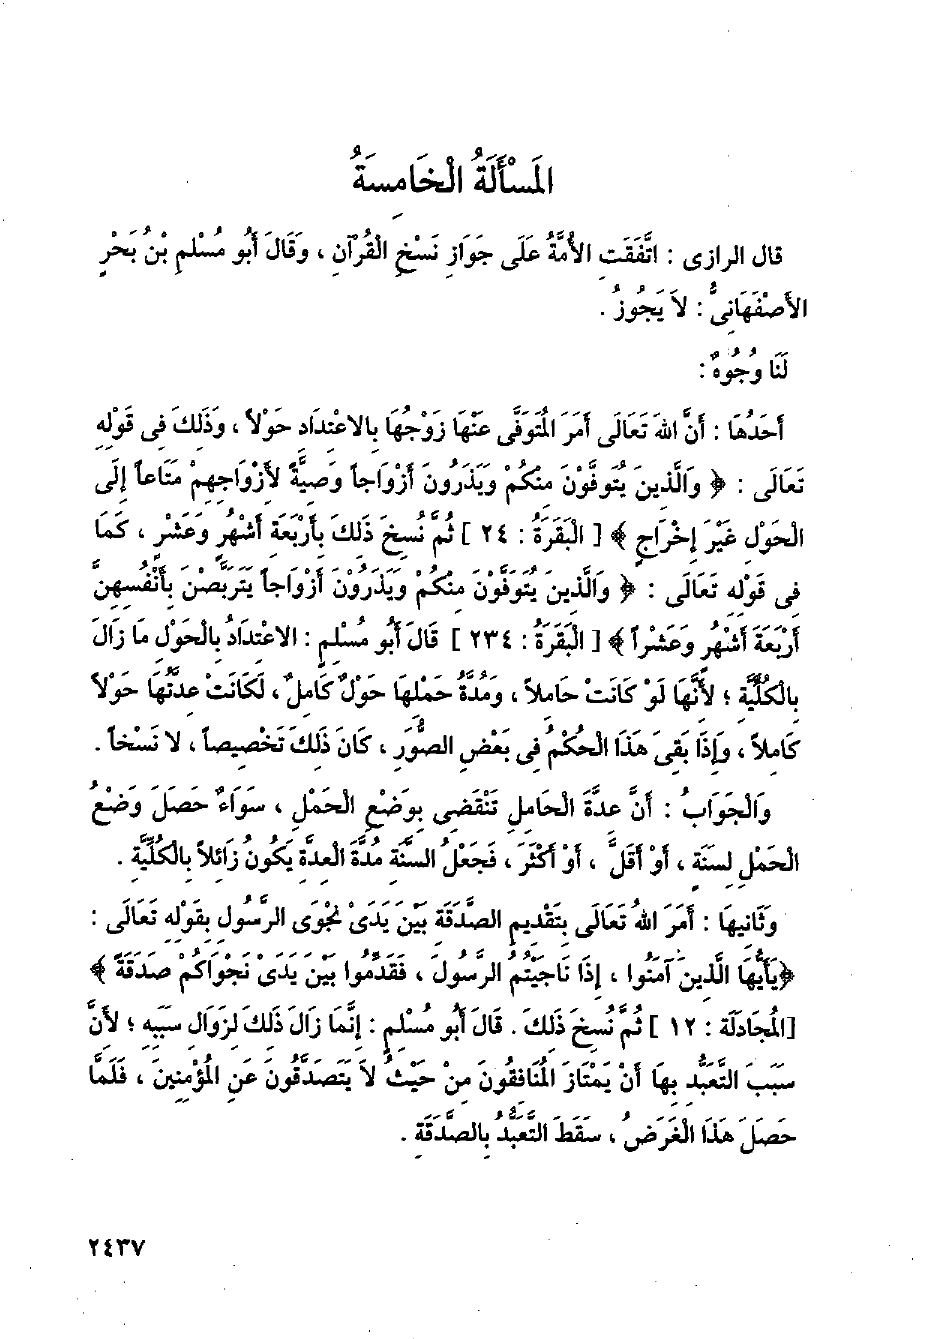 المَسْأَلَةُ الْخَامِسَةُ
قال الرازى : اتَّفَقَت الأُمَّةُ عَلَى جَوَازِ نَسْخِ الْقُرْآنِ ، وَقَالَ أَبُو مُسْلِمِ بْنُ بَحْرٍ
الأَصْفَهَانِىُّ : لاَ يَجُوزُ .
لَنَا وُجُوهٌ :
أَحَدُهَا : أَنَّ اللهَ تَعَالَى أَمَرَ المُتَوَفَّى عَنْهَا زَوْجُهَا بِالاعْتِدَادِ حَوْلاً ، وَذَلِكَ فِى قَوْلِهِ
تَعَالَى : ﴿ وَالَّذِينَ يُتَوفَّوْنَ مِنْكُمْ وَيَذَرُونَ أَزْوَاجاً وَصِيَّةً لأَزْوَاجِهِمْ مَتَاعاً إِلَى
الْحَوْلِ غَيْرَ إِخْرَاجٍ ﴾ [ الْبَقَرَةُ : ٢٤ ] ثُمَّ نُسِخَ ذَلِكَ بِأَرْبَعَةِ أَشْهُرٍ وَعَشْرٍ ، كَمَا
فِى قَوْلِهِ تَعَالَى : ﴿ وَالَّذِينَ يُتَوَفَّوْنَ مِنكُمْ وَيَذَرُوْنَ أَزْوَاجاً يَتَرَبَّصْنَ بِأَنْفُسِهِنَّ
أَرْبَعَةَ أَشْهُرٍ وَعَشْراً ﴾ [ الْبَقَرَةُ : ٢٣٤ ] قَالَ أَبُو مُسْلِمٍ : الاعْتِدَادُ بِالْحَوْلِ مَا زَالَ
بِالْكُلِّيَّةِ ؛ لأَنَّهَا لَوْ كَانَتْ حَامِلاً ، وَمُدَّةُ حَمْلِهَا حَوْلٌ كَامِلٌ ، لَكَانَتْ عِدَّتُهَا حَوْلاً
كَامِلاً ، وَإِذَا بَقِىَ هَذَا الْحُكْمُ فِى بَعْضِ الصُّوَرِ ، كَانَ ذَلِكَ تَخْصِيصاً ، لا نَسْخاً .
وَالْجَوَابُ : أَنَّ عِدَّةَ الْحَامِلِ تَنْقَضِى بِوَضْعِ الْحَمْلِ ، سَوَاءٌ حَصَلَ وَضْعُ
الْحَمْلِ لِسَنَةٍ ، أَوْ أَقَلَّ ، أَوْ أَكْثَرَ ، فَجَعْلُ السَّنَةِ مُدَّةَ الْعِدَّةِ يَكُونُ زَائِلاً بِالْكُلِّيَّةِ .
وَثَانِيهَا : أَمَرَ اللهُ تَعَالَى بِتَقْدِيمِ الصَّدَقَةِ بَيْنَ يَدَىْ نَجْوَى الرَّسُولِ بِقَوْلِهِ تَعَالَى :
﴿يَأَيُّهَا الَّذِينَ آمَنُوا ، إِذَا نَاجَيْتُمُ الرَّسُولَ ، فَقَدِّمُوا بَيْنَ يَدَىْ نَجْوَاكُمْ صَدَقَةً ﴾
[المُجَادَلَة : ١٢ ] ثُمَّ نُسِخَ ذَلِكَ . قَالَ أَبُو مُسْلِمٍ : إِنَّمَا زَالَ ذَلِكَ لِزَوَالِ سَبَبِهِ ؛ لأَنَّ
سَبَبَ التَّعَبُّدِ بِهَا أَنْ يَمْتَازَ المُنَافِقُونَ مِنْ حَيْثُ لاَ يَتَصَدَّقُونَ عَنِ المُؤْمِنِينَ ، فَلَمَّا
حَصَلَ هَذَا الْغَرَضُ ، سَقَطَ التَّعَبُّدُ بِالصَّدَقَةِ .
٢٤٣٧